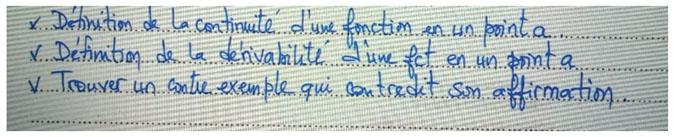 x Définition de la continuité d'une fonction en un point a
v Définition de la dérivabilité d'une fct en un point a
v Trouver un contre exemple qui contredit son affirmation.